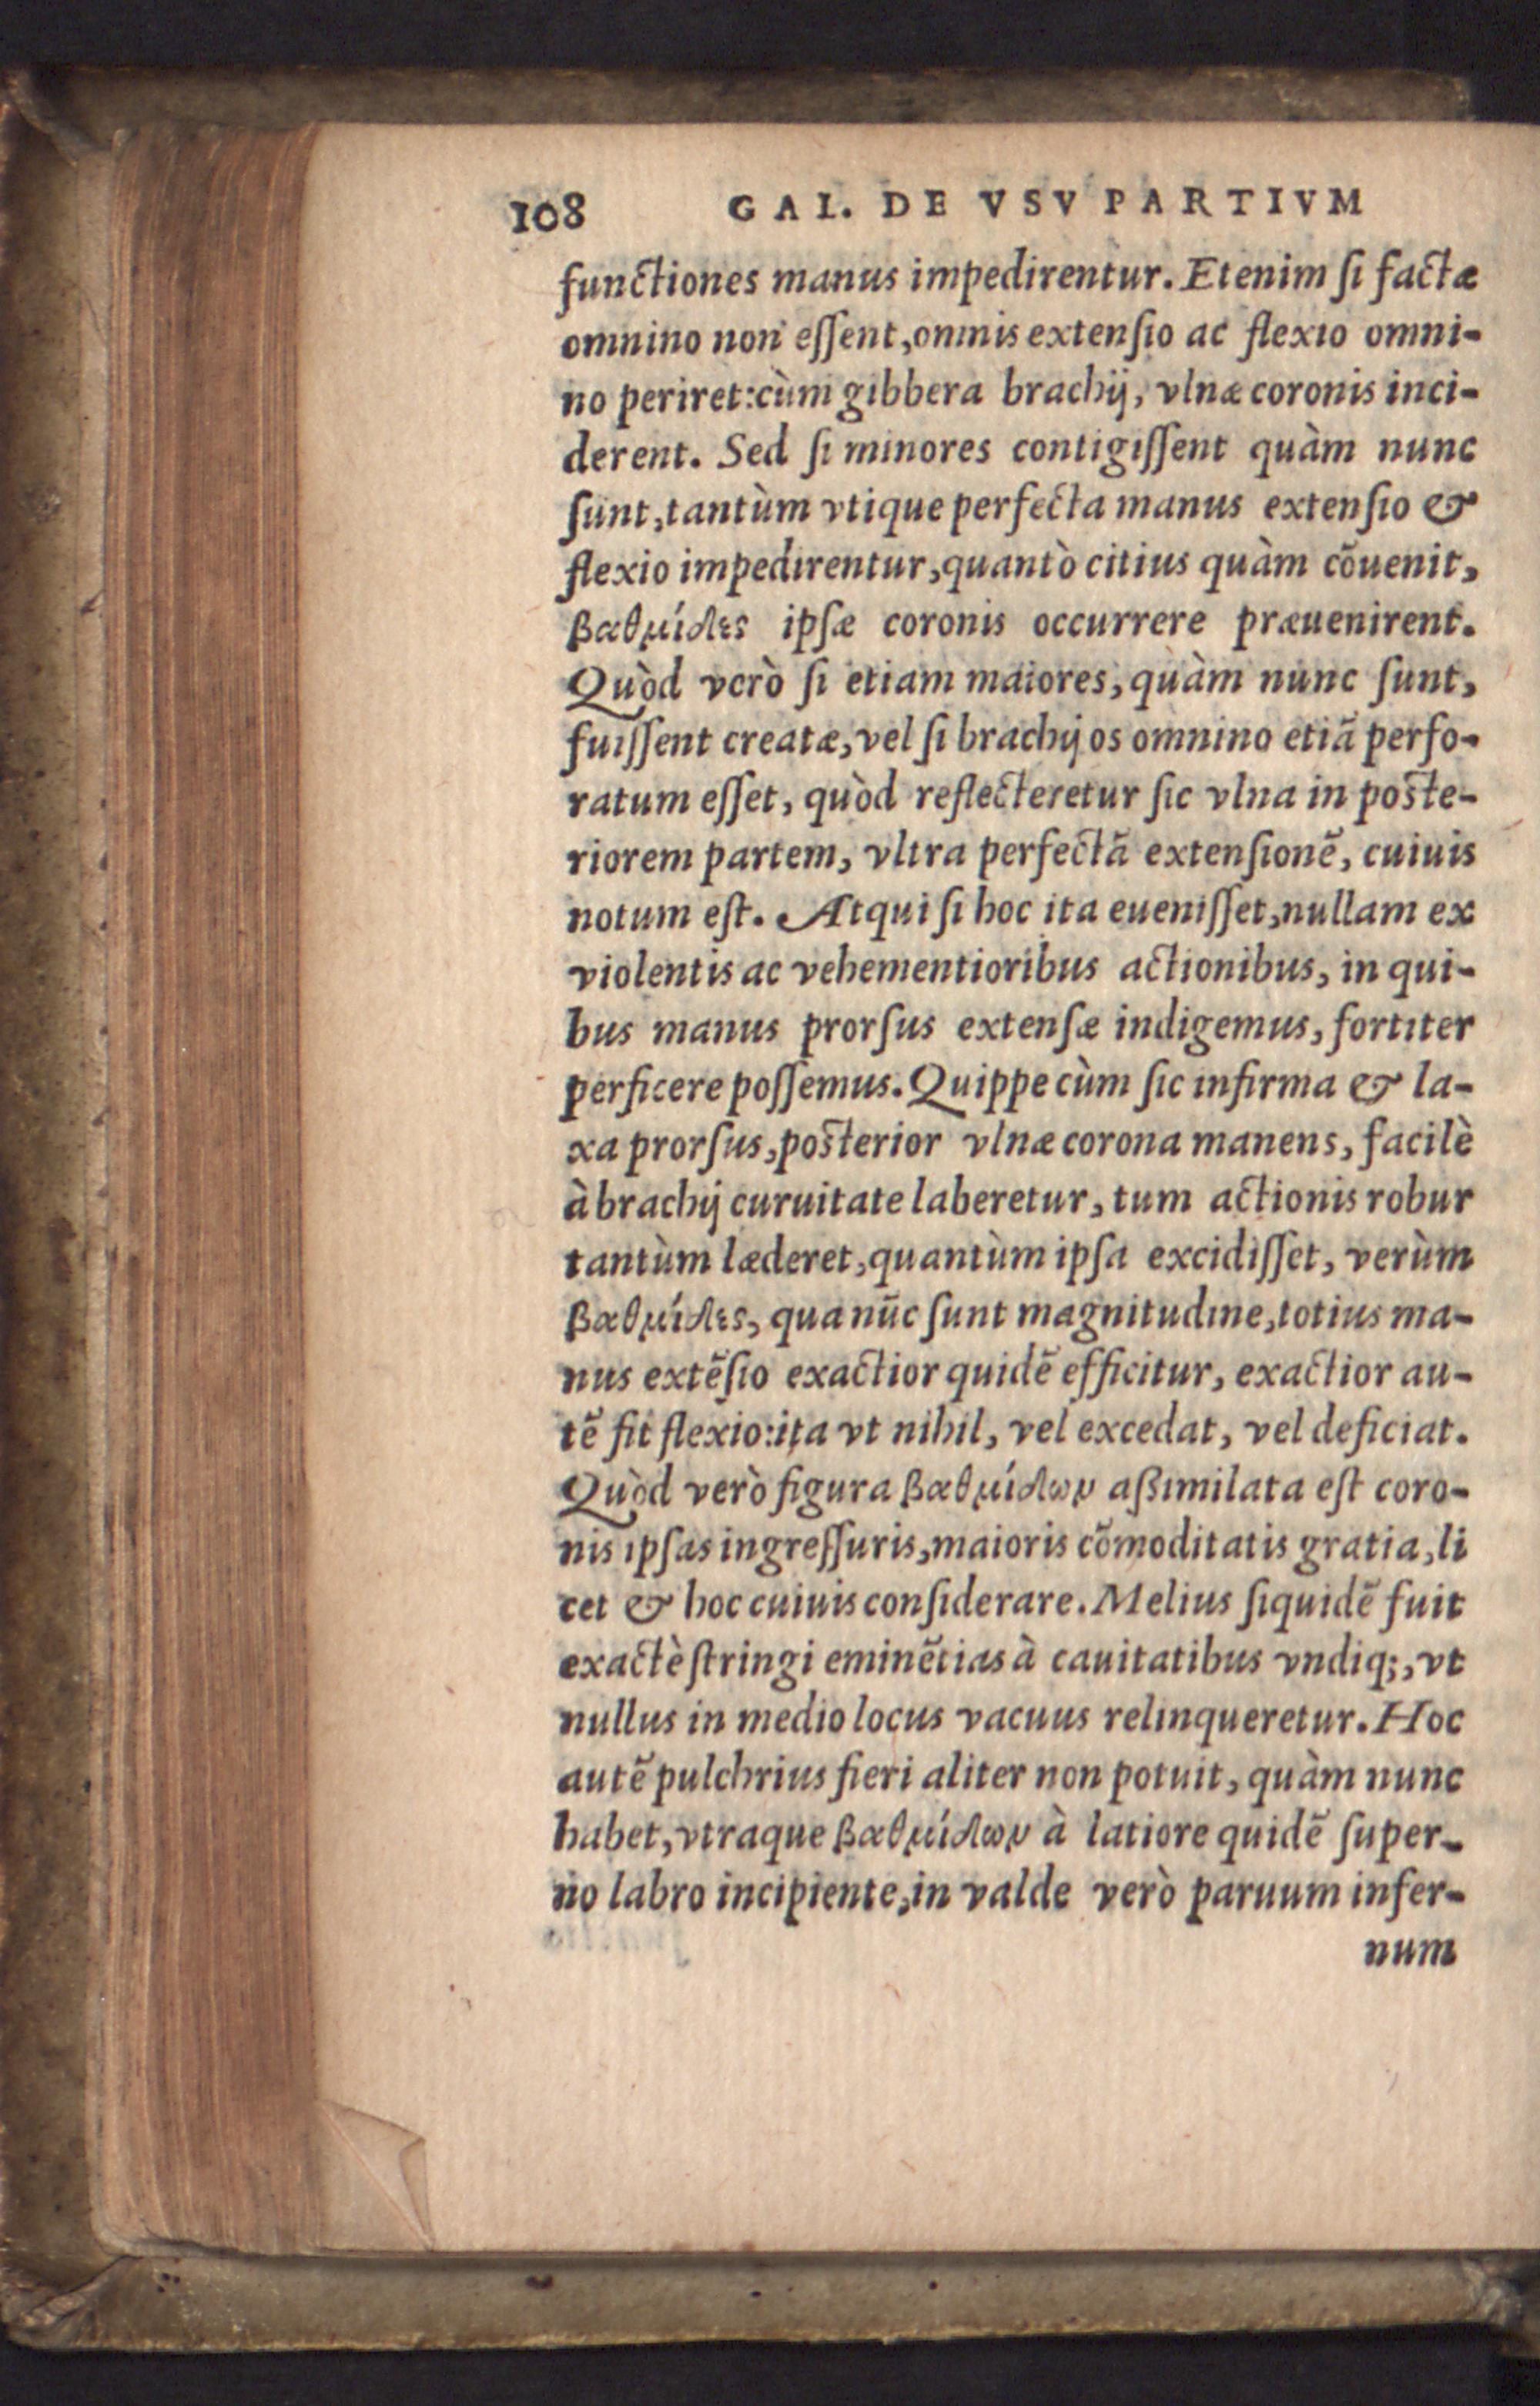 108 GAL. DE VSV PARTIVM
functiones manus impedirentur. Etenim ſi factæ
omnino non eſſent, omnis extenſio ac flexio omni-
no periret: cùm gibbera brachij, vlnæ coronis inci-
derent. Sed ſi minores contigiſſent quàm nunc
ſunt, tantùm vtique perfecta manus extenſio &
flexio impedirentur, quantò citius quàm cõuenit,
βαθμίδες ipſæ coronis occurrere præuenirent.
Quòd verò ſi etiam maiores, quàm nunc ſunt,
fuiſſent creatæ, vel ſi brachij os omnino etiã perfo-
ratum eſſet, quòd reflecteretur ſic vlna in poſte-
riorem partem, vltra perfectã extenſionẽ, cuiuis
notum eſt. Atqui ſi hoc ita eueniſſet, nullam ex
violentis ac vehementioribus actionibus, in qui-
bus manus prorſus extenſæ indigemus, fortiter
perficere poſſemus. Quippe cùm ſic infirma & la-
xa prorſus, poſterior vlnæ corona manens, facilè
à brachij curuitate laberetur, tum actionis robur
tantùm læderet, quantùm ipſa excidiſſet, verùm
βαθμίδες, qua nũc ſunt magnitudine, totius ma-
nus extẽſio exactior quidẽ efficitur, exactior au-
tẽ fit flexio: ita vt nihil, vel excedat, vel deficiat.
Quòd verò figura βαθμίδων aßimilata eſt coro-
nis ipſas ingreſſuris, maioris cõmoditatis gratia, li
cet & hoc cuiuis conſiderare. Melius ſiquidẽ fuit
exactè ſtringi eminẽtias à cauitatibus vndiq;, vt
nullus in medio locus vacuus relinqueretur. Hoc
autẽ pulchrius fieri aliter non potuit, quàm nunc
habet, vtraque βαθμίδων à latiore quidẽ ſuper-
no labro incipiente, in valde verò paruum infer-
num